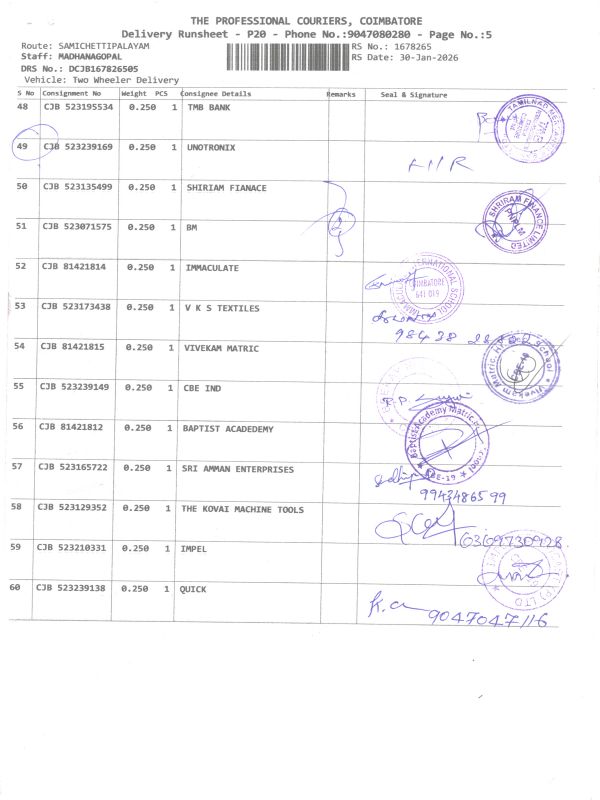 THE PROFESSIONAL COURIERS, COIMBATORE
Delivery Runsheet - P20 - Phone No.:9047080280 - Page No.:5
Route: SAMICHETTIPALAYAM RS No.: 1678265
Staff: MADHANAGOPAL RS Date: 30-Jan-2026
DRS No.: DCJB167826505
Vehicle: Two Wheeler Delivery
S No Consignment No Weight PCS Consignee Details Remarks Seal & Signature
48 CJB 523195534 0.250 1 TMB BANK
49 CJB 523239169 0.250 1 UNOTRONIX
50 CJB 523135499 0.250 1 SHIRIAM FIANACE
SHRIRAM FINANCE LIMITED
51 CJB 523071575 0.250 1 BM
52 CJB 81421814 0.250 1 IMMACULATE
INTERNATIONAL SCHOOL
COIMBATORE
641 019
53 CJB 523173438 0.250 1 V K S TEXTILES
54 CJB 81421815 0.250 1 VIVEKAM MATRIC
Vivekam Matric. Hr. School
CBE-19
55 CJB 523239149 0.250 1 CBE IND
56 CJB 81421812 0.250 1 BAPTIST ACADEDEMY
Baptist Academy Matric
CBE-19
57 CJB 523165722 0.250 1 SRI AMMAN ENTERPRISES
9943486599
58 CJB 523129352 0.250 1 THE KOVAI MACHINE TOOLS
6369730928
59 CJB 523210331 0.250 1 IMPEL
(P) LTD
60 CJB 523239138 0.250 1 QUICK
9047047116